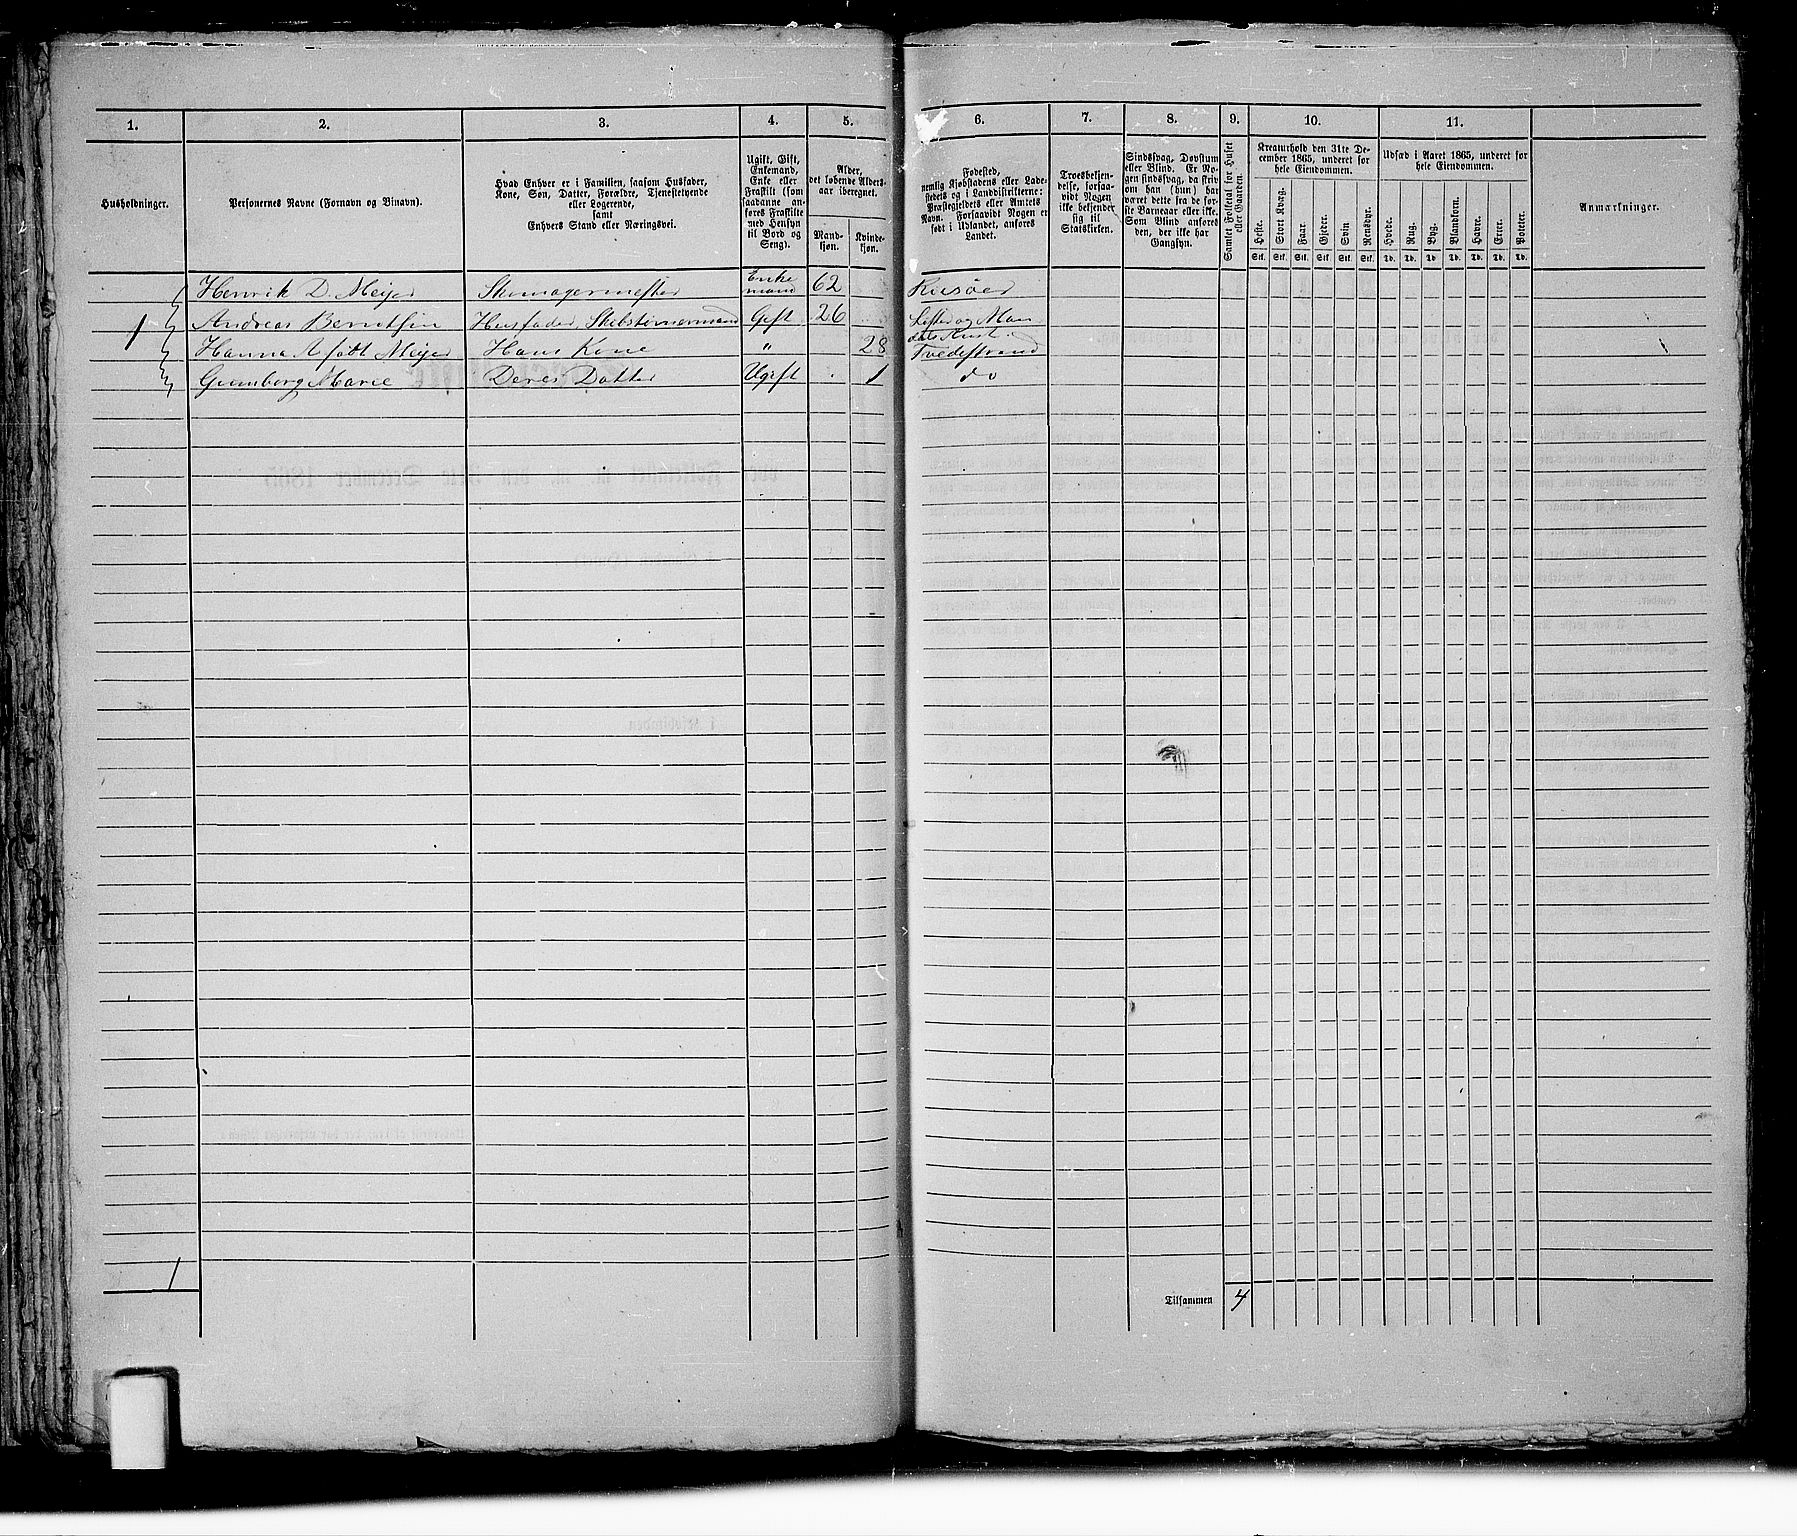 1. 2. 3. 4. 5. 6. 7. 8. 9. 10. 11.
Husholdninger.
Personernes Navne (Fornavn og Binavn).
Hvad Enhver er i Familien, saasom Husfader,
Kone, Søn, Datter, Forældre, Tjenestetyende
eller Logerende,
samt
Enhvers Stand eller Næringsvei.
Ugift, Gift,
Enkemand,
Enke eller
Fraskilt (som
saadanne an-
føres Fraskilte
med Hensyn
til Bord og
Seng).
Alder,
det løbende Alders-
aar iberegnet.
Mand-
kjøn.
Kvinde-
kjøn.
Fødested,
nemlig Kjøbstadens eller Lade-
stedets og i Landdistrikterne:
Præstegjeldets eller Amtets
Navn. Forsaavidt Nogen er
født i Udlandet, anføres
Landet.
Troesbekjen-
delse, forsaa-
vidt Nogen
ikke bekjender
sig til
Statskirken.
Sindssvag, Døvstum
eller Blind. Er No-
gen sindssvag, da skriv
om han (hun) har
været dette fra de før-
ste Barneaar eller ikke.
Som Blind anføres
den, der ikke har
Gangsyn.
Samlet Folketal for Huset
eller Gaarden.
Kreaturhold den 31te De-
cember 1865, underet for
hele Eiendommen.
Heste. Stort Kvæg. Faar. Gjeder. Svin Rensdyr.
Stk. Stk. Stk. Stk. Stk. Stk.
Udsæd i Aaret 1865, underet for
hele Eiendommen.
Hvede. Rug. Byg. Blandkorn. Havre. Erter. Poteter.
Td. Td. Td. Td. Td. Td. Td.
Anmærkninger.
Henrik D. Meijer Skomagermester Enke mand 62 Risöer
1 Andreas Berntsen Husfader, Skibstømmermand Gift 26 Lister og Man dals Amt
Hanna A. født Meijer Hans Kone " 28 Tvedestrand
Gunborg Marie Deres Datter Ugift 1 do
1
Tilsammen 4